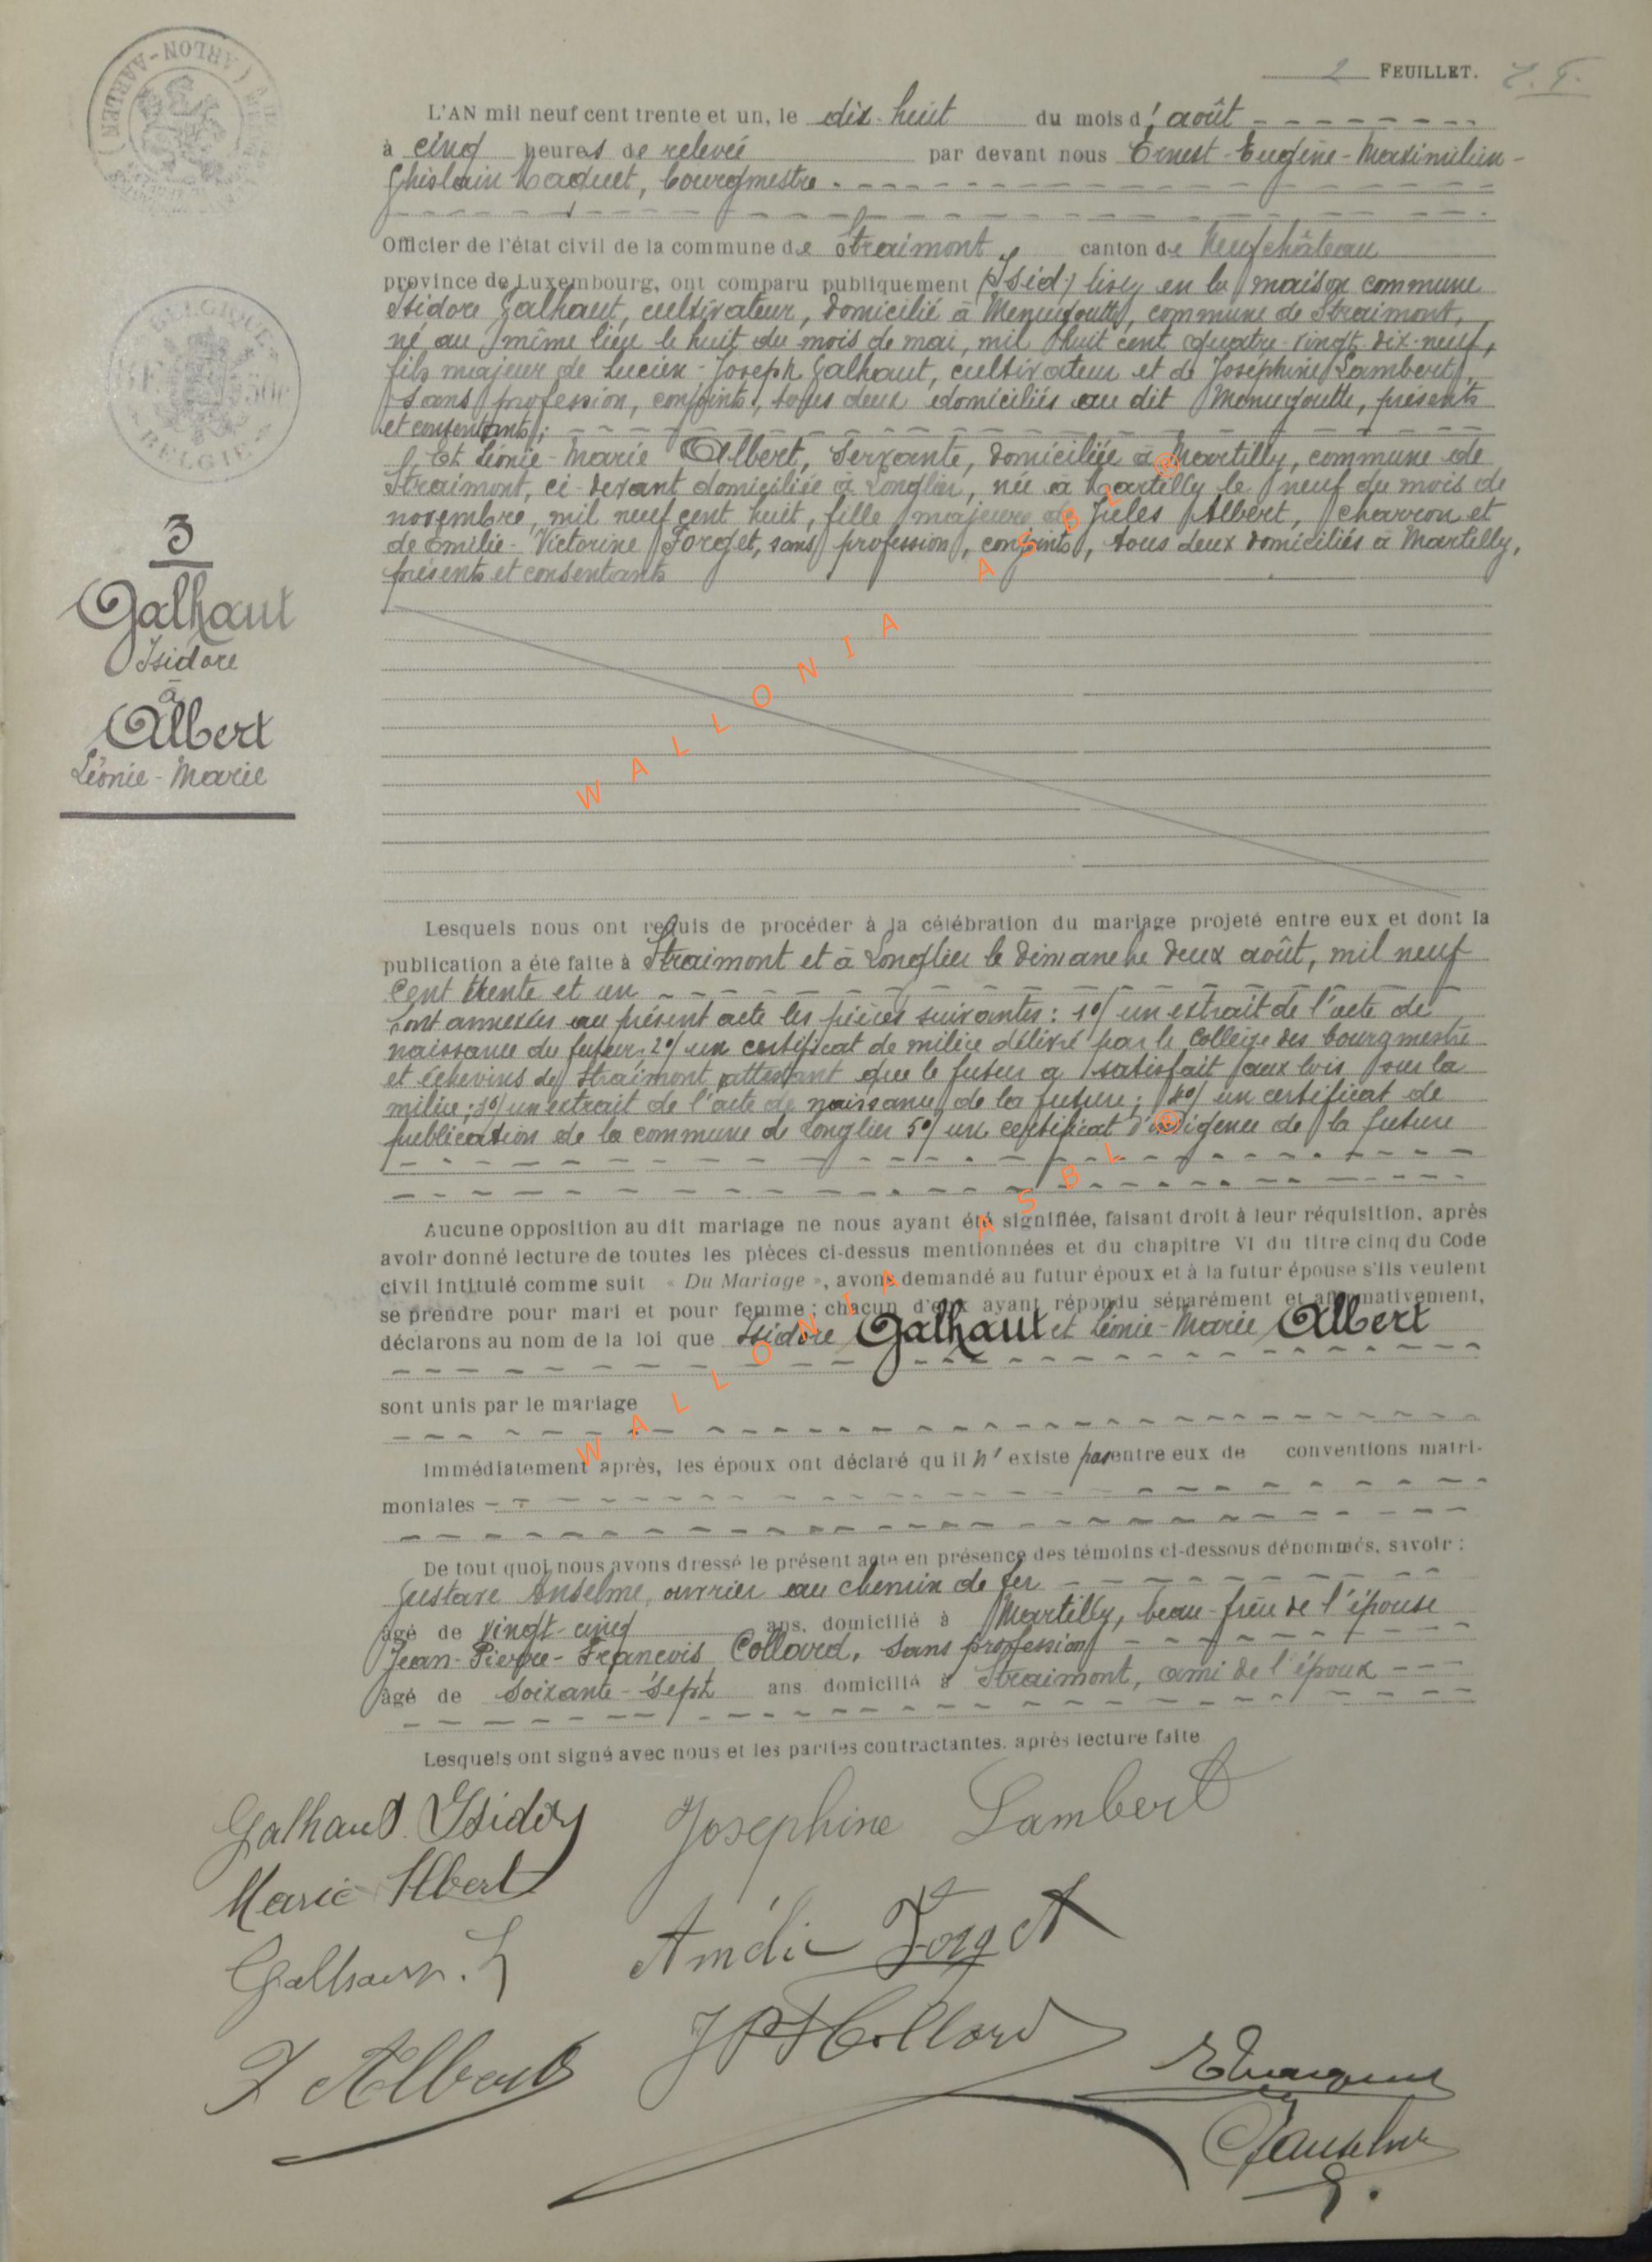 2 FEUILLET.
L'AN mil neuf cent trente et un, le dix-huit du mois d'août
à cinq heures de relevée par devant nous Ernest-Eugène-Maximilien-
Ghislain, bourgmestre
Officier de l'état civil de la commune de Straimont, canton de Neufchâteau
province de Luxembourg, ont comparu publiquement en la maison commune
Isidore Galhaut, cultivateur, domicilié à Menugoutte, commune de Straimont,
né au même lieu le huit du mois de mai, mil huit cent quatre-vingt-dix-neuf,
fils majeur de Lucien-Joseph Galhaut, cultivateur et de Joséphine Lambert,
sans profession, conjoints, tous deux domiciliés au dit Menugoutte, présents
et consentants;
Et Léonie-Marie Albert, servante, domiciliée à Martilly, commune de
Straimont, ci-devant domiciliée à Longlier, née à Martilly le neuf du mois de
novembre, mil neuf cent huit, fille majeure de Jules Albert, charron et
de Emilie-Victorine Forget, sans profession, conjoints, tous deux domiciliés à Martilly,
présents et consentants
3
Galhaut
Isidore
à
Albert
Léonie-Marie
Lesquels nous ont requis de procéder à la célébration du mariage projeté entre eux et dont la
publication a été faite à Straimont et à Longlier le dimanche deux août, mil neuf
cent trente et un
Sont annexées au présent acte les pièces suivantes : 1o/ un extrait de l'acte de
naissance du futur; 2o/ un certificat de milice délivré par le collège des bourgmestre
et échevins de Straimont attestant que le futur a satisfait aux lois sur la
milice; 3o/ un extrait de l'acte de naissance de la future; 4o/ un certificat de
publication de la commune de Longlier 5o/ un certificat d'indigence de la future
Aucune opposition au dit mariage ne nous ayant été signifiée, faisant droit à leur réquisition, après
avoir donné lecture de toutes les pièces ci-dessus mentionnées et du chapitre VI du titre cinq du Code
civil intitulé comme suit « Du Mariage », avons demandé au futur époux et à la futur épouse s'ils veulent
se prendre pour mari et pour femme ; chacun d'eux ayant répondu séparément et affirmativement,
déclarons au nom de la loi que Isidore Galhaut et Léonie-Marie Albert
sont unis par le mariage
Immédiatement après, les époux ont déclaré qu'il n'existe pas entre eux de conventions matri-
moniales
De tout quoi nous avons dressé le présent acte en présence des témoins ci-dessous dénommés, savoir :
Gustave Anselme, ouvrier au chemin de fer
âgé de vingt-cinq ans, domicilié à Martilly, beau-frère de l'épouse
Jean-Pierre-François Collard, sans profession
âgé de soixante-sept ans domicilié à Straimont, ami de l'époux
Lesquels ont signé avec nous et les parties contractantes, après lecture faite
Galhaut Isidore Josephine Lambert
Marie Albert
Amélie Forget
Galhaut. L
JPF Collard
J Albert
GAnselme
BELGIQUE
BELGIE
ARLON-AARLEN
WALLONIA ASBL ®
WALLONIA ASBL ®